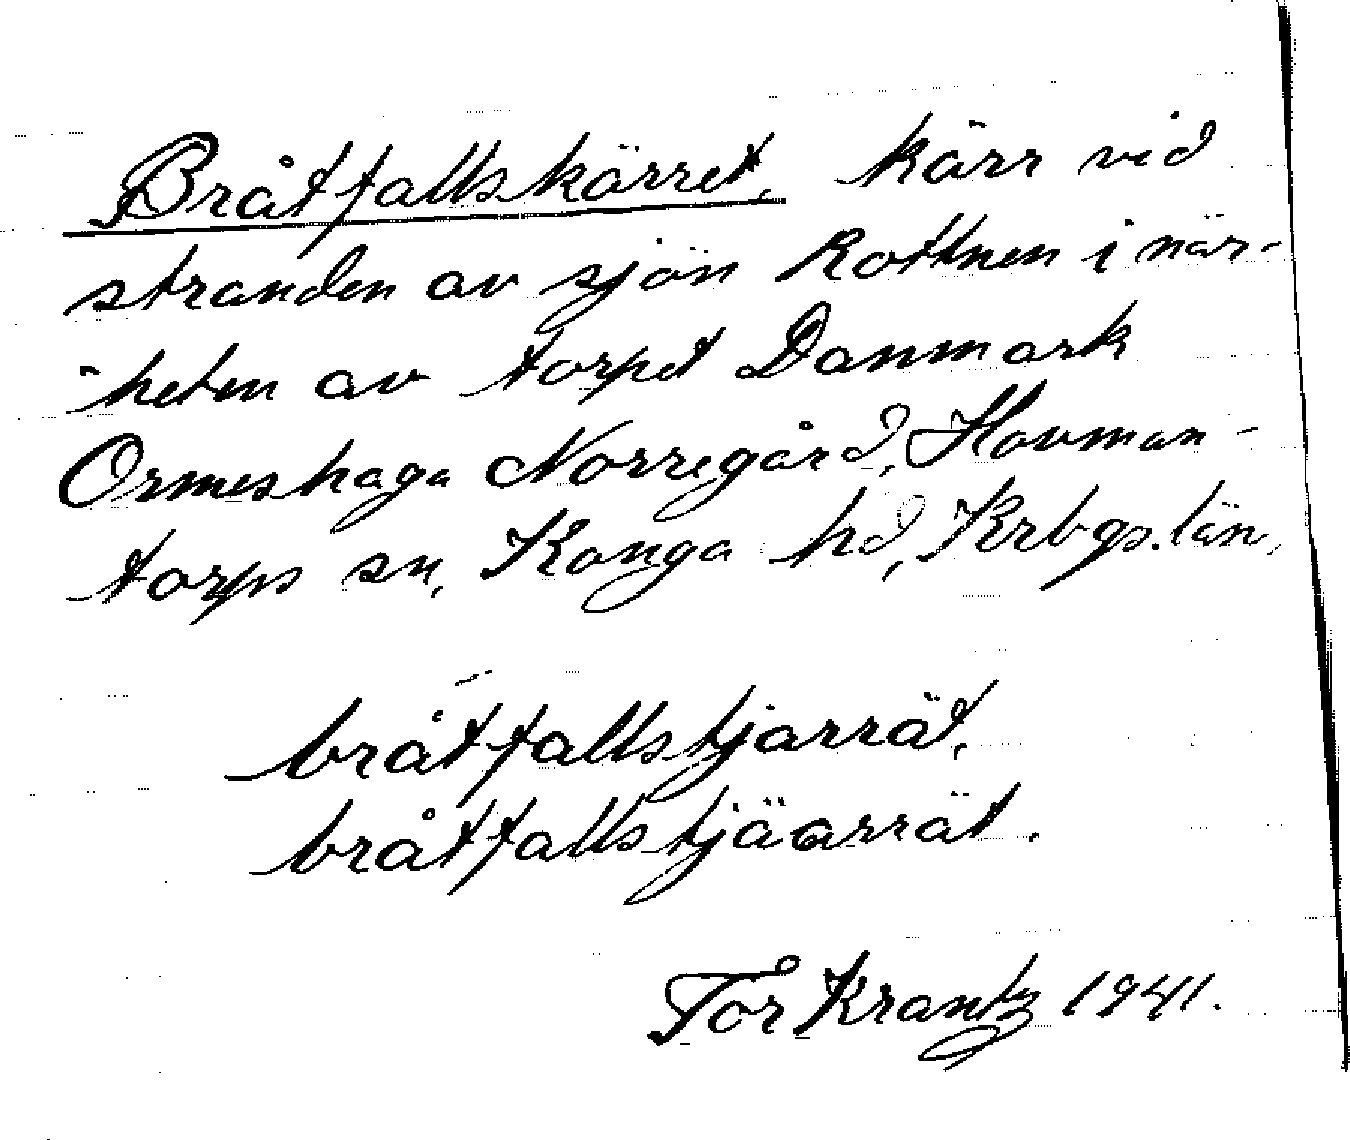 Bråtfallskärret, kärr vid
stranden av sjön Rottnen i när-
heten av torpet Danmark
Ormeshaga Norregård, Hovman-
torps sn, Konga hd, Krbgs. län,
bråtfallstjarrät,
bråtfallstjäarrät.
Tor Krantz 1941.